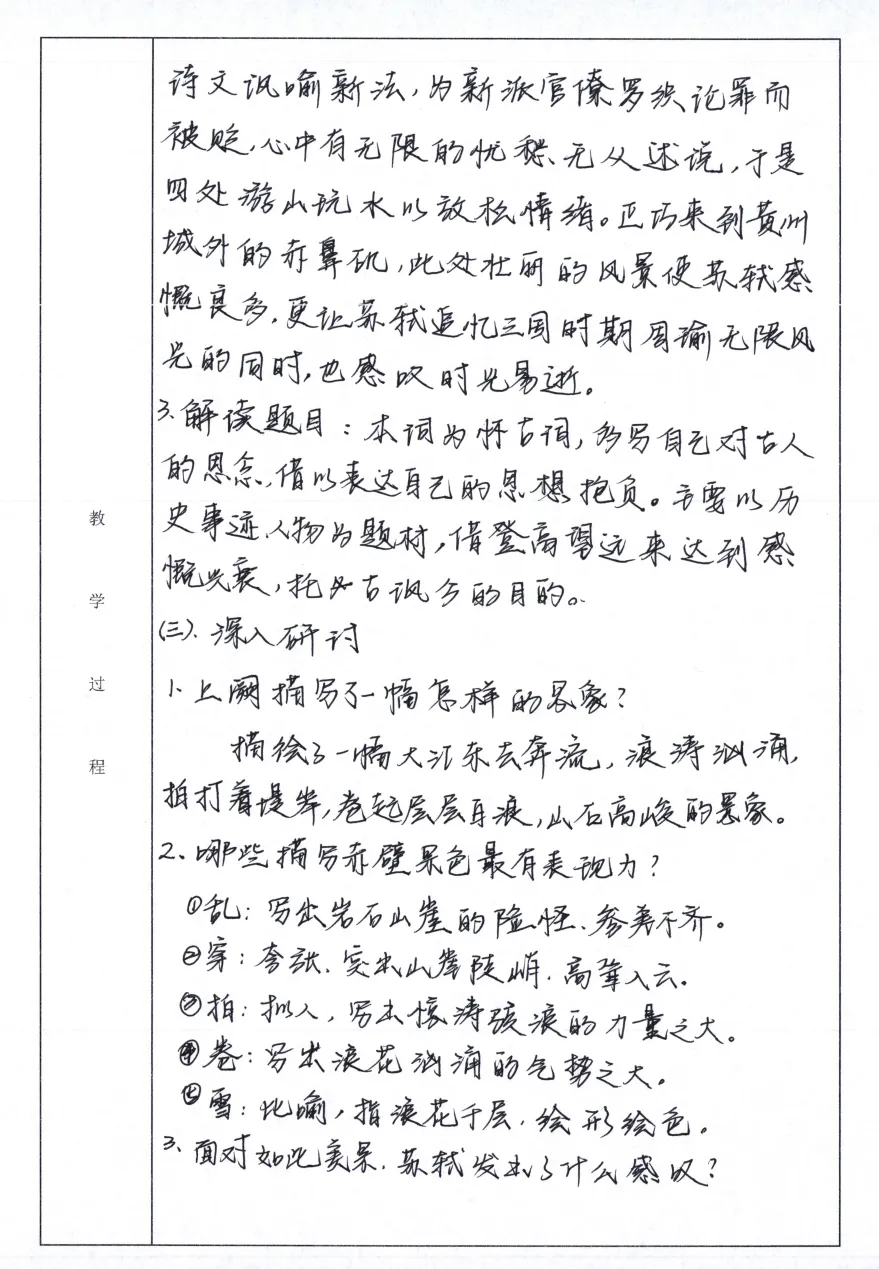 教
学
过
程
诗文讽喻新法，为新派官僚罗织论罪而
被贬，心中有无限的忧愁、无从述说，于是
四处游山玩水以放松情绪。正巧来到黄州
城外的赤鼻矶，此处壮丽的风景使苏轼感
慨良多，更让苏轼追忆三国时期周瑜无限风
光的同时，也感叹时光易逝。
3、解读题目：本词为怀古词，多写自己对古人
的思念，借以表达自己的思想抱负。主要以历
史事迹、人物为题材，借登高望远来达到感
慨兴衰，托古讽今的目的。
(三)、深入研讨
1、上阕描写了一幅怎样的景象？
描绘了一幅大江东去奔流，浪涛汹涌，
拍打着堤岸，卷起层层白浪，山石高峻的景象。
2、哪些描写赤壁景色最有表现力？
①乱：写出岩石山崖的险怪、参差不齐。
②穿：夸张、突出山崖陡峭、高耸入云.
③拍：拟人，写出惊涛骇浪的力量之大。
④卷：写出浪花汹涌的气势之大。
⑤雪：比喻，指浪花千层、绘形绘色。
3、面对如此美景、苏轼发出了什么感叹？